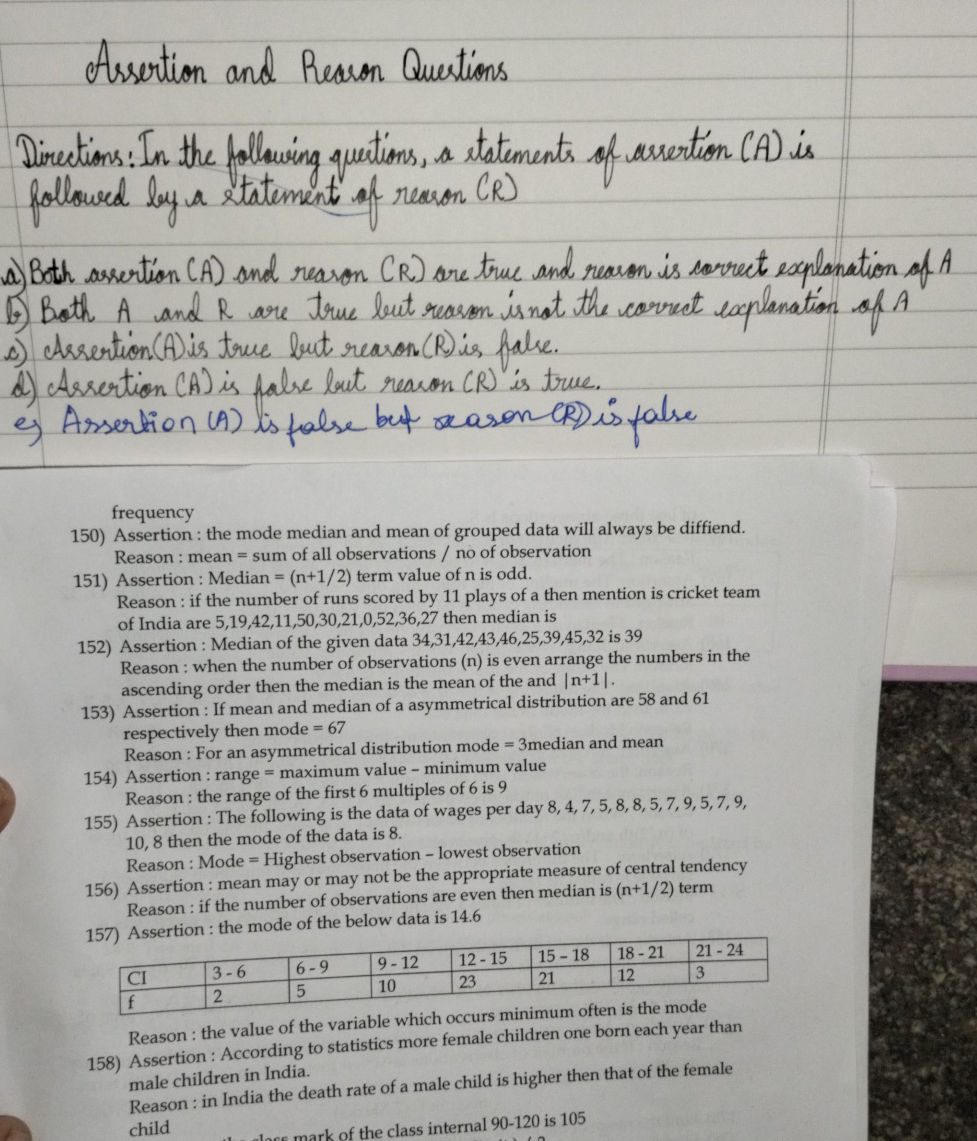 Assertion and Reason Questions
Directions: In the following questions, a statements of assertion (A) is
followed by a statement of reason (R)
a) Both assertion (A) and reason (R) are true and reason is correct explanation of A
b) Both A and R are true but reason is not the correct explanation of A
c) Assertion (A) is true but reason (R) is false.
d) Assertion (A) is false but reason (R) is true.
e) Assertion (A) is false but reason (R) is false
frequency
150) Assertion : the mode median and mean of grouped data will always be diffiend.
Reason : mean = sum of all observations / no of observation
151) Assertion : Median = (n+1/2) term value of n is odd.
Reason : if the number of runs scored by 11 plays of a then mention is cricket team
of India are 5,19,42,11,50,30,21,0,52,36,27 then median is
152) Assertion : Median of the given data 34,31,42,43,46,25,39,45,32 is 39
Reason : when the number of observations (n) is even arrange the numbers in the
ascending order then the median is the mean of the and |n+1|.
153) Assertion : If mean and median of a asymmetrical distribution are 58 and 61
respectively then mode = 67
Reason : For an asymmetrical distribution mode = 3median and mean
154) Assertion : range = maximum value – minimum value
Reason : the range of the first 6 multiples of 6 is 9
155) Assertion : The following is the data of wages per day 8, 4, 7, 5, 8, 8, 5, 7, 9, 5, 7, 9,
10, 8 then the mode of the data is 8.
Reason : Mode = Highest observation – lowest observation
156) Assertion : mean may or may not be the appropriate measure of central tendency
Reason : if the number of observations are even then median is (n+1/2) term
157) Assertion : the mode of the below data is 14.6
CI 3 - 6 6 - 9 9 - 12 12 - 15 15 – 18 18 - 21 21 - 24
f 2 5 10 23 21 12 3
Reason : the value of the variable which occurs minimum often is the mode
158) Assertion : According to statistics more female children one born each year than
male children in India.
Reason : in India the death rate of a male child is higher then that of the female
child
class mark of the class internal 90-120 is 105